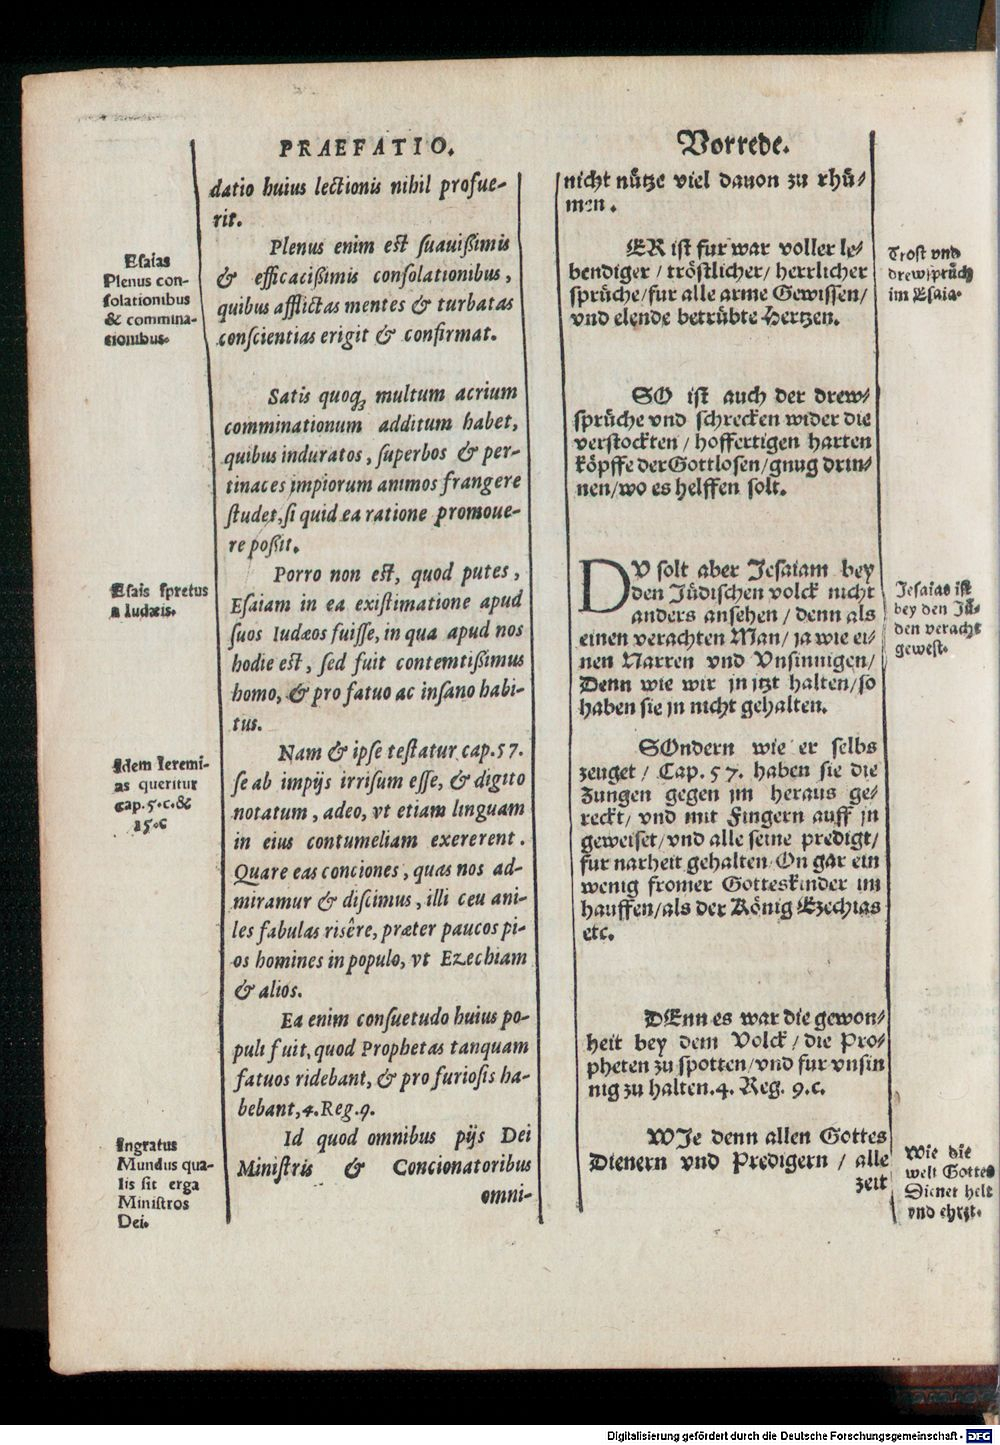 PRAEFATIO.
datio huius lectionis nihil profue-
rit.
Plenus enim est suauißimis
& efficacißimis consolationibus,
quibus afflictas mentes & turbatas
conscientias erigit & confirmat.
Satis quoqꝫ multum acrium
comminationum additum habet,
quibus induratos, superbos & per-
tinaces impiorum animos frangere
studet, si quid ea ratione promoue-
re poßit.
Porro non est, quod putes,
Esaiam in ea existimatione apud
suos Iudæos fuisse, in qua apud nos
hodie est, sed fuit contemtißimus
homo, & pro fatuo ac insano habi-
tus.
Nam & ipse testatur cap. 57.
se ab impijs irrisum esse, & digito
notatum, adeo, vt etiam linguam
in eius contumeliam exererent.
Quare eas conciones, quas nos ad-
miramur & discimus, illi ceu ani-
les fabulas risêre, præter paucos pi-
os homines in populo, vt Ezechiam
& alios.
Ea enim consuetudo huius po-
puli fuit, quod Prophetas tanquam
fatuos ridebant, & pro furiosis ha-
bebant, 4. Reg. 9.
Id quod omnibus pijs Dei
Ministris & Concionatoribus
omni-
Esaias
Plenus con-
solationibus
& commina-
tionibus.
Esais spretus
a Iudæis.
Idem Ieremi-
as queritur
cap. 5. c. &
15. c
Ingratus
Mundus qua-
lis sit erga
Ministros
Dei.
Vorrede.
nicht nütze viel dauon zu rhü/
men.
ER ist fur war voller le/
bendiger / tröstlicher / herrlicher
sprüche / fur alle arme Gewissen /
vnd elende betrübte Hertzen.
SO ist auch der drew/
sprüche vnd schrecken wider die
verstockten / hoffertigen harten
köpffe der Gottlosen / gnug drin/
nen / wo es helffen solt.
DV solt aber Jesaiam bey
den Jüdischen volck nicht
anders ansehen / denn als
einen verachten Man / ja wie ei/
nen Narren vnd Vnsinnigen /
Denn wie wir jn jtzt halten / so
haben sie jn nicht gehalten.
SOndern wie er selbs
zeuget / Cap. 57. haben sie die
Zungen gegen jm heraus ge/
reckt / vnd mit Fingern auff jn
geweiset / vnd alle seine predigt /
fur narheit gehalten On gar ein
wenig fromer Gotteskinder im
hauffen / als der König Ezechias
etc.
DEnn es war die gewon/
heit bey dem Volck / die Pro/
pheten zu spotten / vnd fur vnsin
nig zu halten. 4. Reg. 9. c.
WJe denn allen Gottes
Dienern vnd Predigern / alle
zeit
Trost vnd
drewsprüch
im Esaia.
Jesaias ist
bey den Jü/
den veracht
gewest.
Wie die
welt Gottes
Diener helt
vnd ehrt.
Digitalisierung gefördert durch die Deutsche Forschungsgemeinschaft - DFG